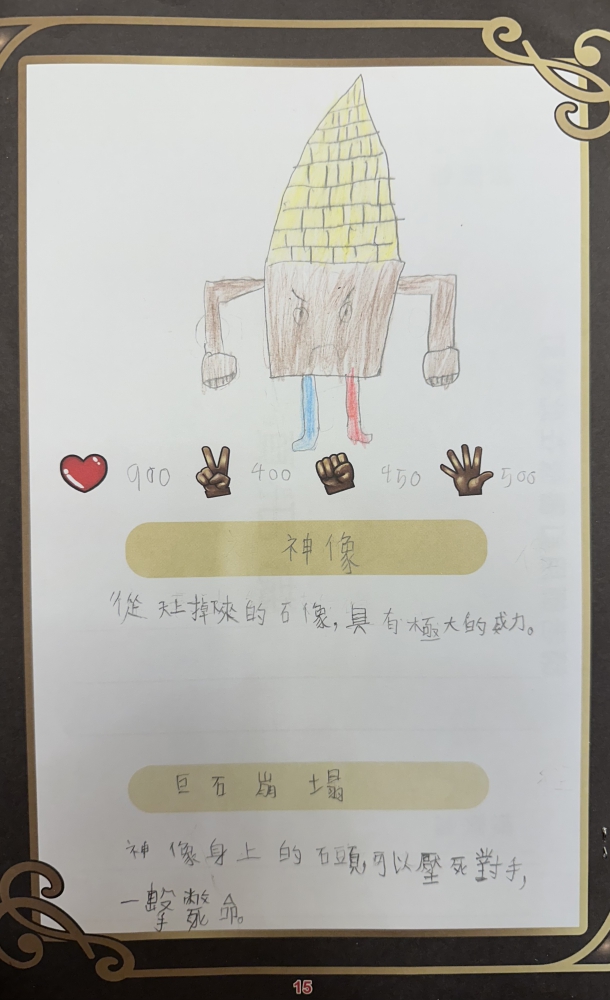 900 400 450 500
神像
從天上掉下來的石像,具有極大的威力。
巨石崩塌
神像身上的石頭,可以壓死對手,
一擊斃命。
15